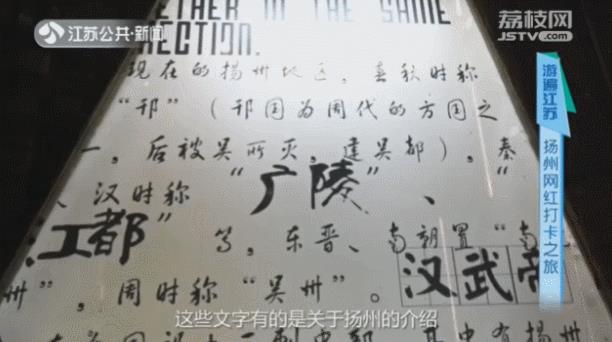 江苏公共·新闻
荔枝网
JSTV.com
ETHER IN THE SAME
RECTION.
现在的扬州地区，春秋时称
“邗”（邗国为周代的方国之
一，后被吴所灭，建吴都），秦
、汉时称“广陵”、“
江都”等，东晋、南朝置“南
汉武帝
州”，周时称“吴州”。
游遍江苏
扬州网红打卡之旅
这些文字有的是关于扬州的介绍